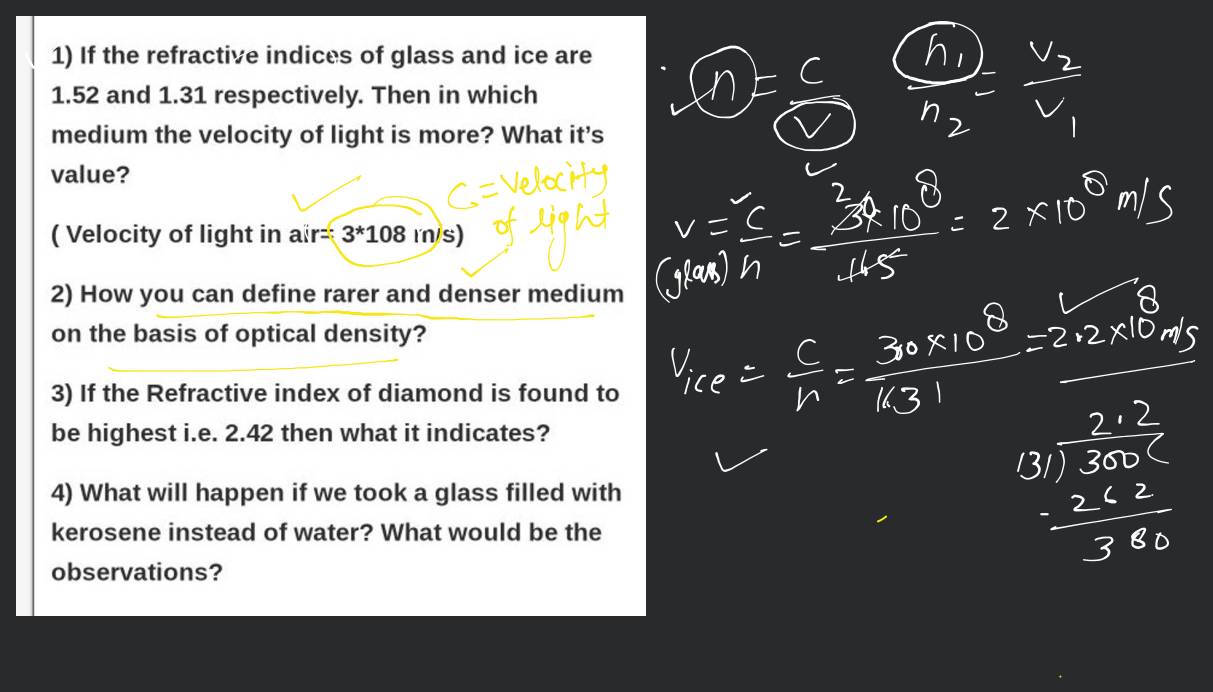 1) If the refractive indices of glass and ice are
1.52 and 1.31 respectively. Then in which
medium the velocity of light is more? What it's
value?
( Velocity of light in air= 3*108 m/s)
C = Velocity
of light
2) How you can define rarer and denser medium
on the basis of optical density?
3) If the Refractive index of diamond is found to
be highest i.e. 2.42 then what it indicates?
4) What will happen if we took a glass filled with
kerosene instead of water? What would be the
observations?
n = C / V
n1 / n2 = V2 / V1
V (glass) = C / n = 30×10^8 / 15 = 2 × 10^8 m/s
Vice = C / n = 300×10^8 / 131 = 2.2×10^8 m/s
2.2
131) 300 (
- 262
380